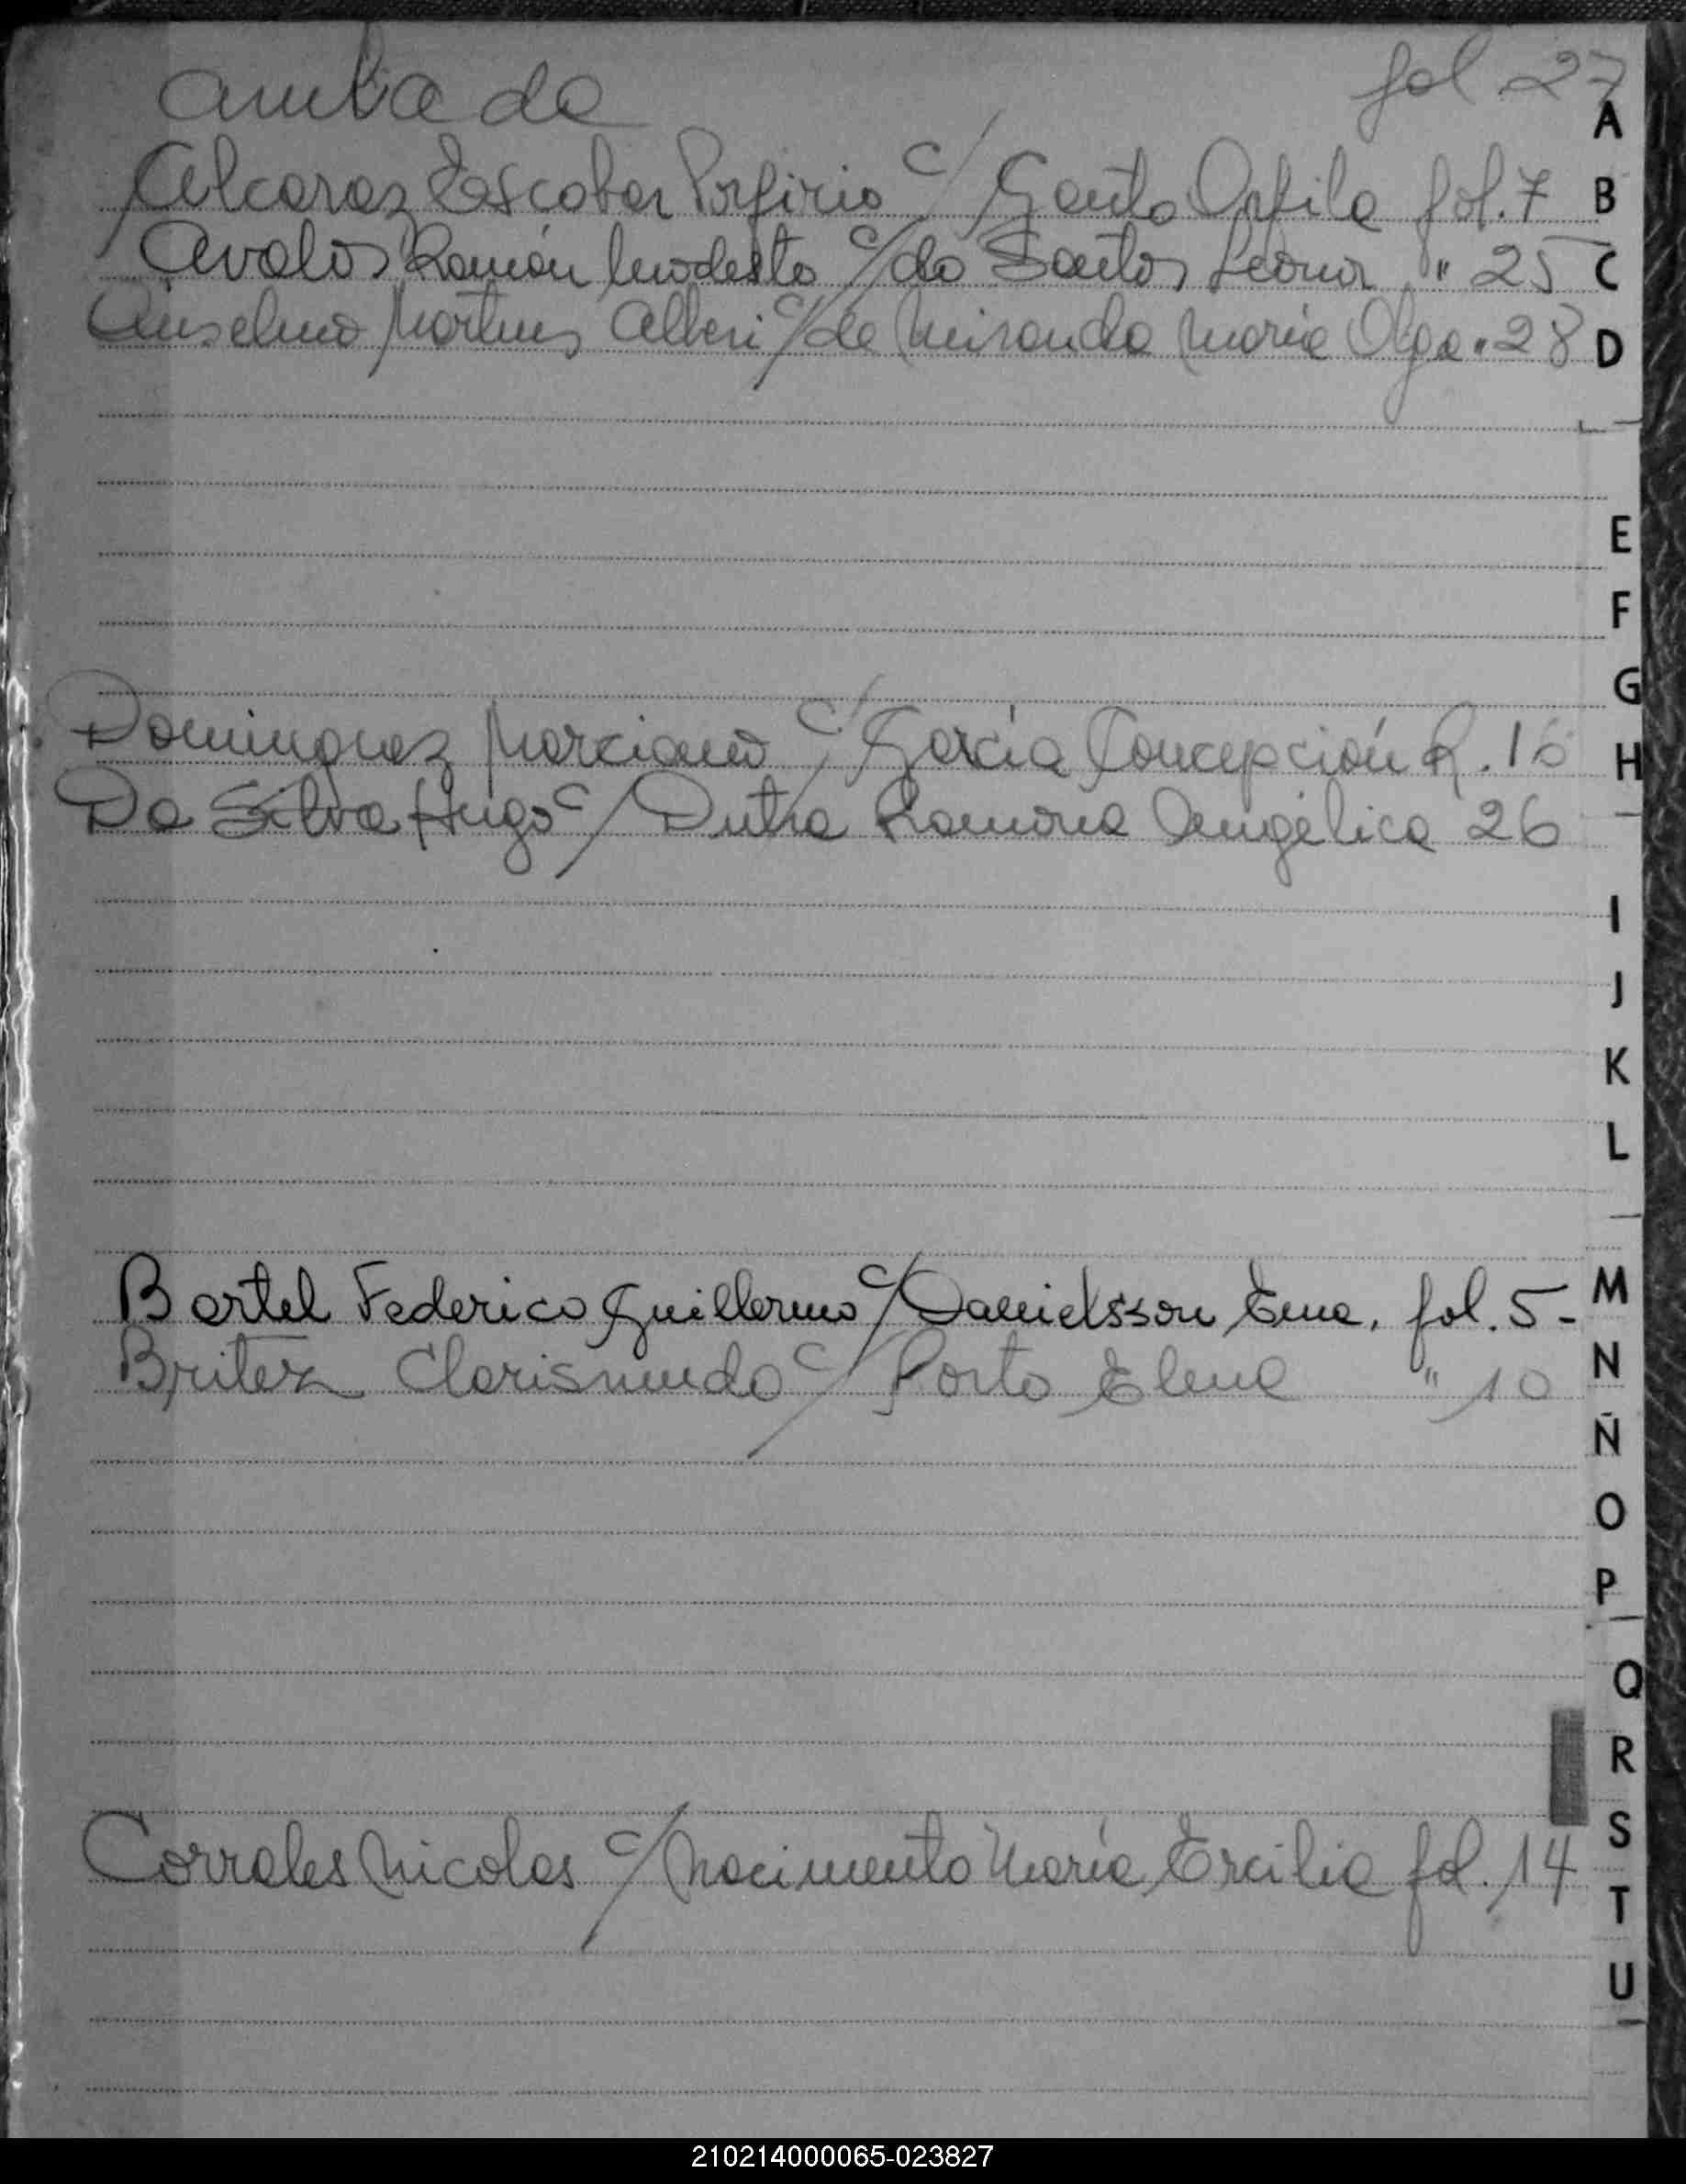 anulada fol. 27
Alcaraz Escobar Porfirio c/ Santo Orfila fol. 7
Avalos Ramón Modesto c/ do Santos Leonor " 25
Anselmo Martins Alberi c/ de Miranda María Olga " 28
Dominguez Marciano c/ García Concepción R. 16
Da Silva Hugo c/ Dutra Ramona Angélica 26
Bartel Federico Guillermo c/ Danielsson Ema, fol. 5-
Britez Clarismundo c/ Porto Elena " 10
Corrales Nicolas c/ Nacimento María Ercilia fol. 14
A
B
C
D
E
F
G
H
I
J
K
L
M
N
Ñ
O
P
Q
R
S
T
U
210214000065-023827